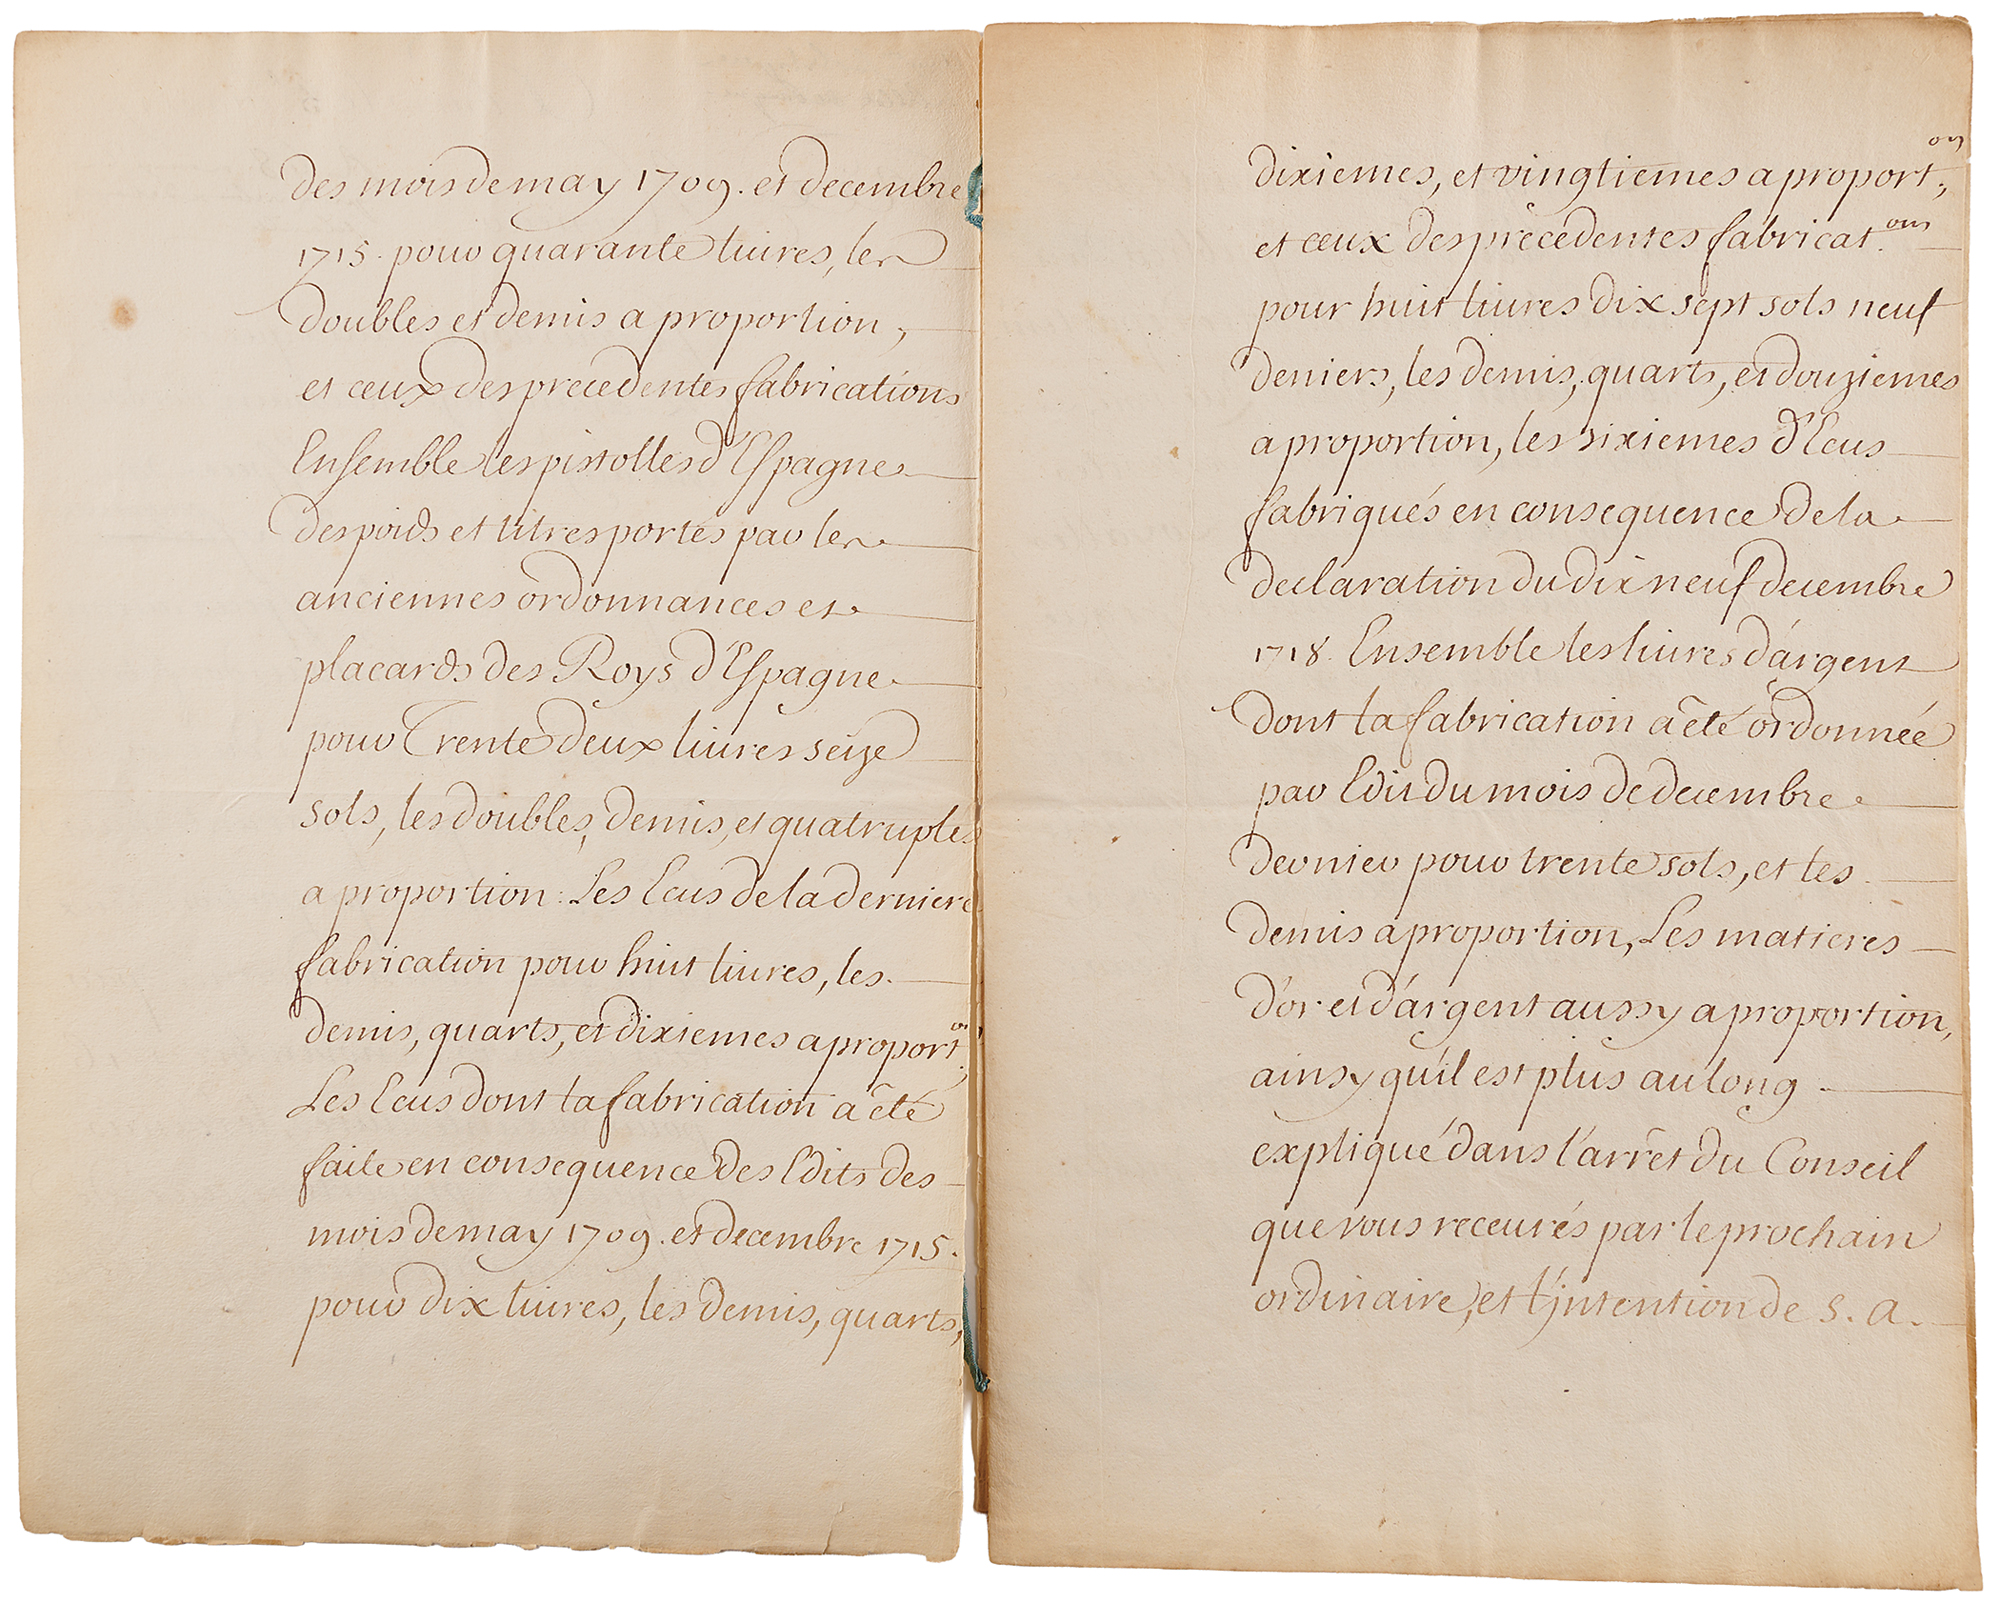 des mois de may 1709. et decembre
1715. pour quarante livres, les
doubles et demis a proportion,
et ceux des precedentes fabrications
Ensemble les pistolles d'Espagne
des poids et titres portés par les
anciennes ordonnances et
placards des Roys d'Espagne
pour Trente deux livres seize
sols, les doubles, demis, et quatruples
a proportion: Les Ecus de la derniere
fabrication pour huit livres, les
demis, quarts, et dixiemes a proport.on
Les Ecus dont la fabrication a été
faite en consequence des Edits des
mois de may 1709. et decembre 1715.
pour dix livres, les demis, quarts,
dixiemes, et vingtiemes a proport.on,
et ceux des precedentes fabricat.ons
pour huit livres dix sept sols neuf
deniers, les demis, quarts, et douziemes
a proportion, les sixiemes d'Ecus
fabriqués en consequence de la
declaration du dix neuf decembre
1718. Ensemble les livres d'argent
dont la fabrication a été ordonnée
par Edit du mois de decembre
dernier pour trente sols, et les
demis a proportion, Les matieres
d'or et d'argent aussy a proportion,
ainsy qu'il est plus au long
expliqué dans l'arrêt du Conseil
que vous receurés par le prochain
ordinaire, et l'jntention de S. A.